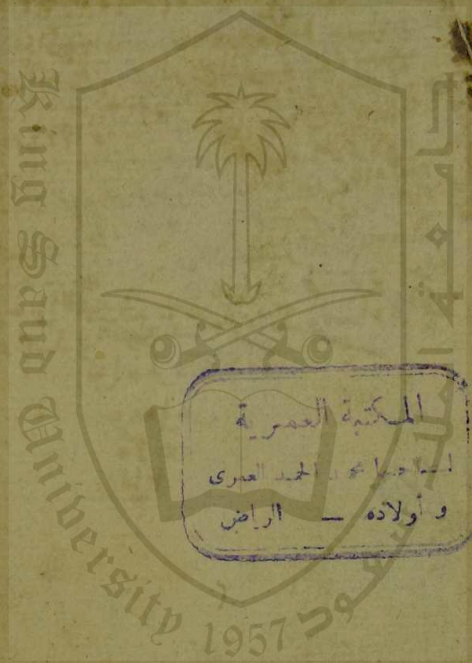 King Saud University
جامعة الملك سعود
1957
المكتبة العمرية
لصاحبها محمد الحمد العمرى
و أولاده — الرياض